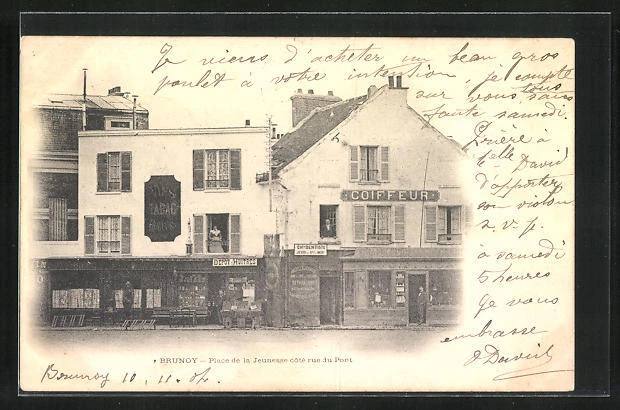 Je viens d'acheter un beau gros
poulet à votre intention, je compte
sur vous tous sans
faute samedi
Prière à
Melle David
d'apporter
son violon
s.v.p.
à samedi
5 heures
Je vous
embrasse
David
TABAC
COIFFEUR
CHn DENTISTE
DEPOT D'HUITRES
BRUNOY – Place de la Jeunesse côté rue du Pont
Brunoy 10.11.04